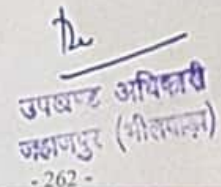 उपखण्ड अधिकारी
जहाजपुर (भीलवाड़ा)
- 262 -